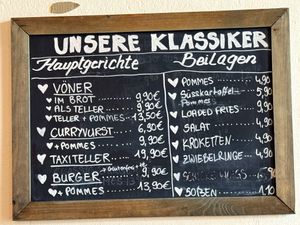 UNSERE KLASSIKER
Hauptgerichte
♥ VÖNER
♥ IM BROT 9,90€
♥ ALS TELLER 9,90€
♥ TELLER + POMMES 13,50€
♥ CURRYWURST 6,90€
♥ + POMMES 9,90€
♥ TAXITELLER 19,90€
♥ BURGER 9,90€
♥ + POMMES 13,90€
Beilagen
♥ POMMES 4,90
♥ Süsskartoffel- 5,90
Pommes
♥ LOADED FRIES 9,90
♥ SALAT 4,90
♥ KROKETTEN 4,90
♥ ZWIEBELRINGE 4,90
♥ SOßEN 1,10